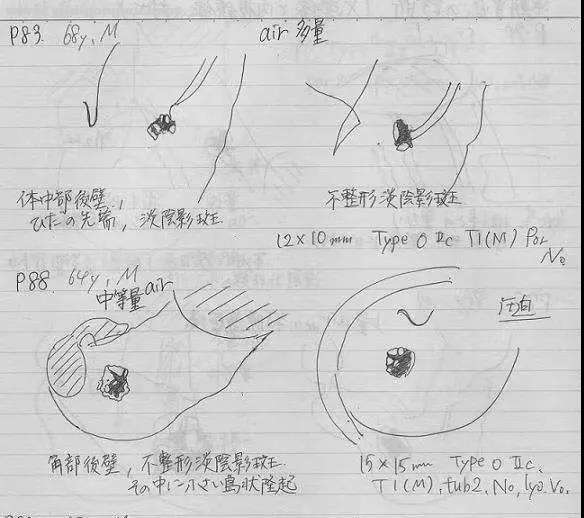 P83. 68y, M
air 多量
体中部後壁,
ひだの先端, 淡陰影斑
不整形淡陰影斑
12×10mm Type 0 IIc T1(M) Por
N0
P88. 64y, M
中等量air
圧迫
角部後壁, 不整形淡陰影斑.
その中に小さい島状隆起
15×15mm Type 0 IIc,
T1(M), tub2, N0, ly0. V0,